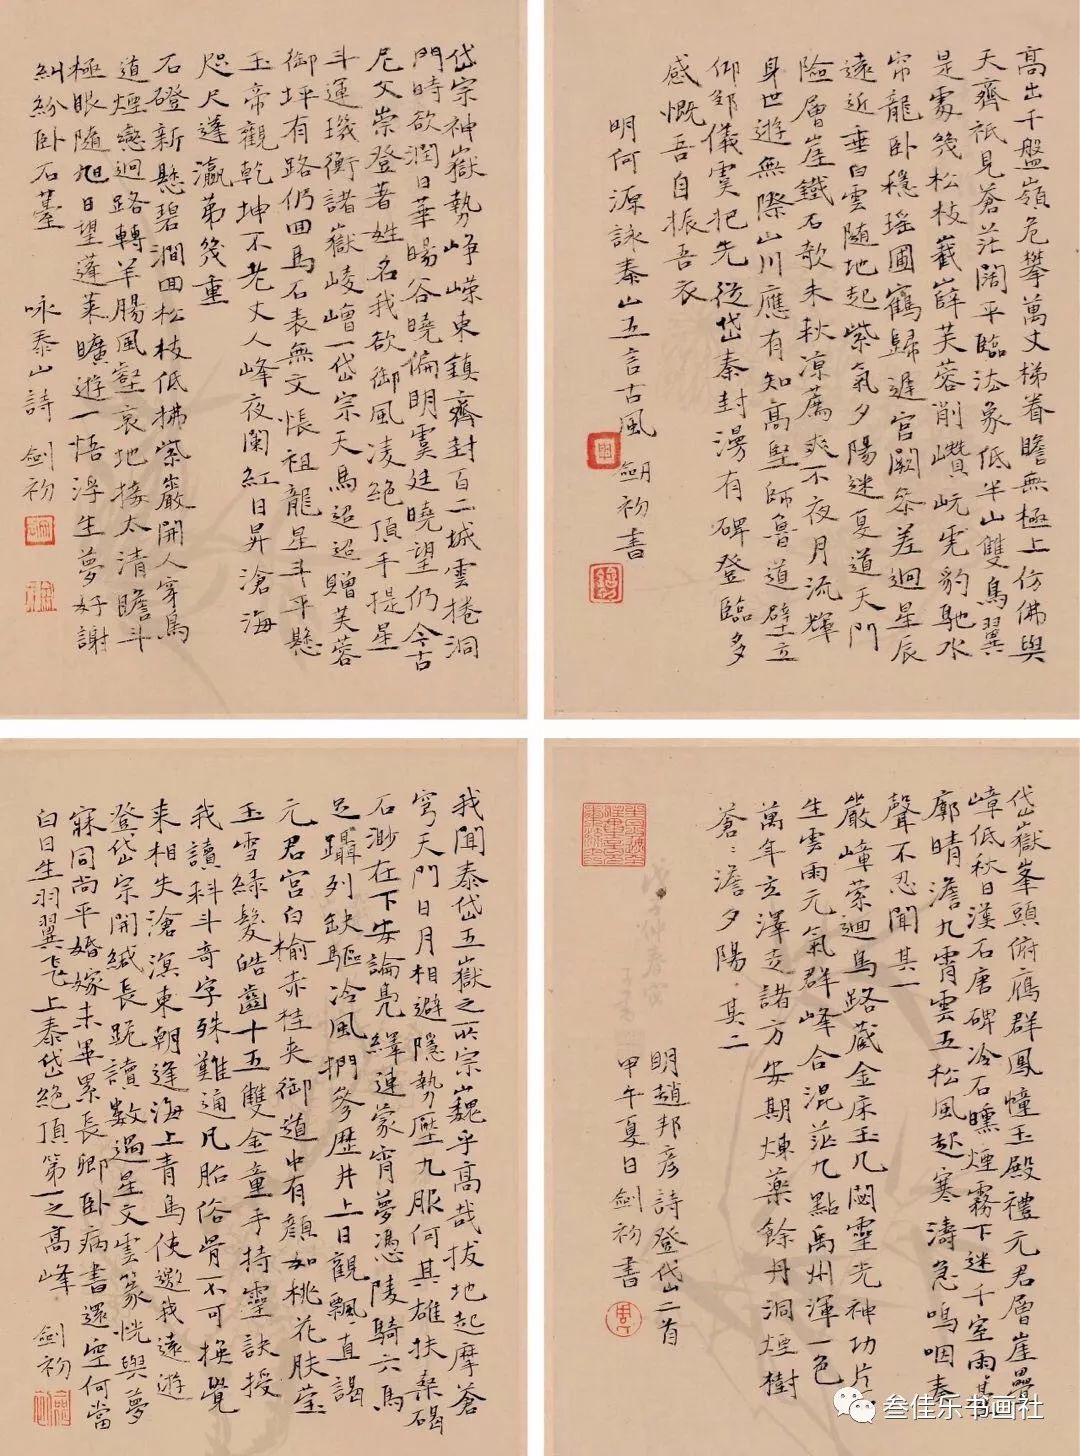 高出千盤嶺危攀萬丈梯眷瞻無極上仿佛與
天齊祇見蒼茫闊平臨法象低半山雙鳥翼
是處幾松枝嶻薛芙蓉削巑岏虎豹馳水
帘龍卧穩瑶圃鶴歸遲宫闕參差迥星辰
遠近垂白雲隨地起紫氣夕陽迷夏道天門
險層崖鐵石欹未秋凉薦爽不夜月流輝
身世遊無際山川應有知高堅師魯道壁立
仰鄒儀寞把先從岱秦封漫有碑登臨多
感慨吾自振吾衣
明何源詠泰山五言古風 劍初書
岱宗神嶽勢崢嶸東鎮齊封百二城雲捲洞
門時欲潤日華暘谷曉偏明虞廷曉望仍今古
尼父崇登著姓名我欲御風凌絶頂手提星
斗運璣衡諸嶽崚嶒一岱宗天馬迢迢贈芙蓉
御坪有路仍回馬石表無文悵祖龍星斗平懸
玉帝觀乾坤不老丈人峰夜闌紅日昇滄海
咫尺蓬瀛第幾重
石磴新懸碧澗回松枝低拂紫巖開人穿鳥
道煙巒迥路轉羊腸風壑哀地接太清瞻斗
極眼隨旭日望蓬萊曠遊一悟浮生夢好謝
糾紛卧石薹 咏泰山詩 劍初
岱嶽峯頭俯雁群鳳幢玉殿禮元君層崖疊
嶂低秋日漢石唐碑冷石曛煙霧下迷千室雨
廓晴澹九霄雲五松風起寒濤急鳴咽秦
聲不忍聞其一
巖嶂縈迴鳥路藏金床玉几閟靈光神功片
生雲雨元氣群峰合混茫九點禹州渾一色
萬年玄澤走諸方安期煉藥餘丹洞煙樹
蒼〻澹夕陽 其二
明趙邦彦詩登岱山二首
甲午夏日劍初書
我聞泰岱五嶽之所宗巍乎高哉拔地起摩蒼
穹天門日月相避隱勢壓九服何其雄扶桑碣
石渺在下安論鳧繹連蒙宵夢憑陵騎六馬
足躡列缺驅冷風捫參歷井上日觀飄飄直謁
元君宫白榆赤桂夾御道中有顔如桃花膚瑩
玉雪緑髮皓齒十五雙金童手持靈訣授
我讀科斗奇字殊難通凡胎俗骨不可换覺
来相失滄溟東朝逢海上青鳥使邀我遠遊
登岱宗開緘長跪讀數過星文雲篆恍與夢
寐同尚平婚嫁未畢累長卿卧病書還空何當
白日生羽翼飛上泰岱絶頂第一之高峰 劍初
叁佳乐书画社